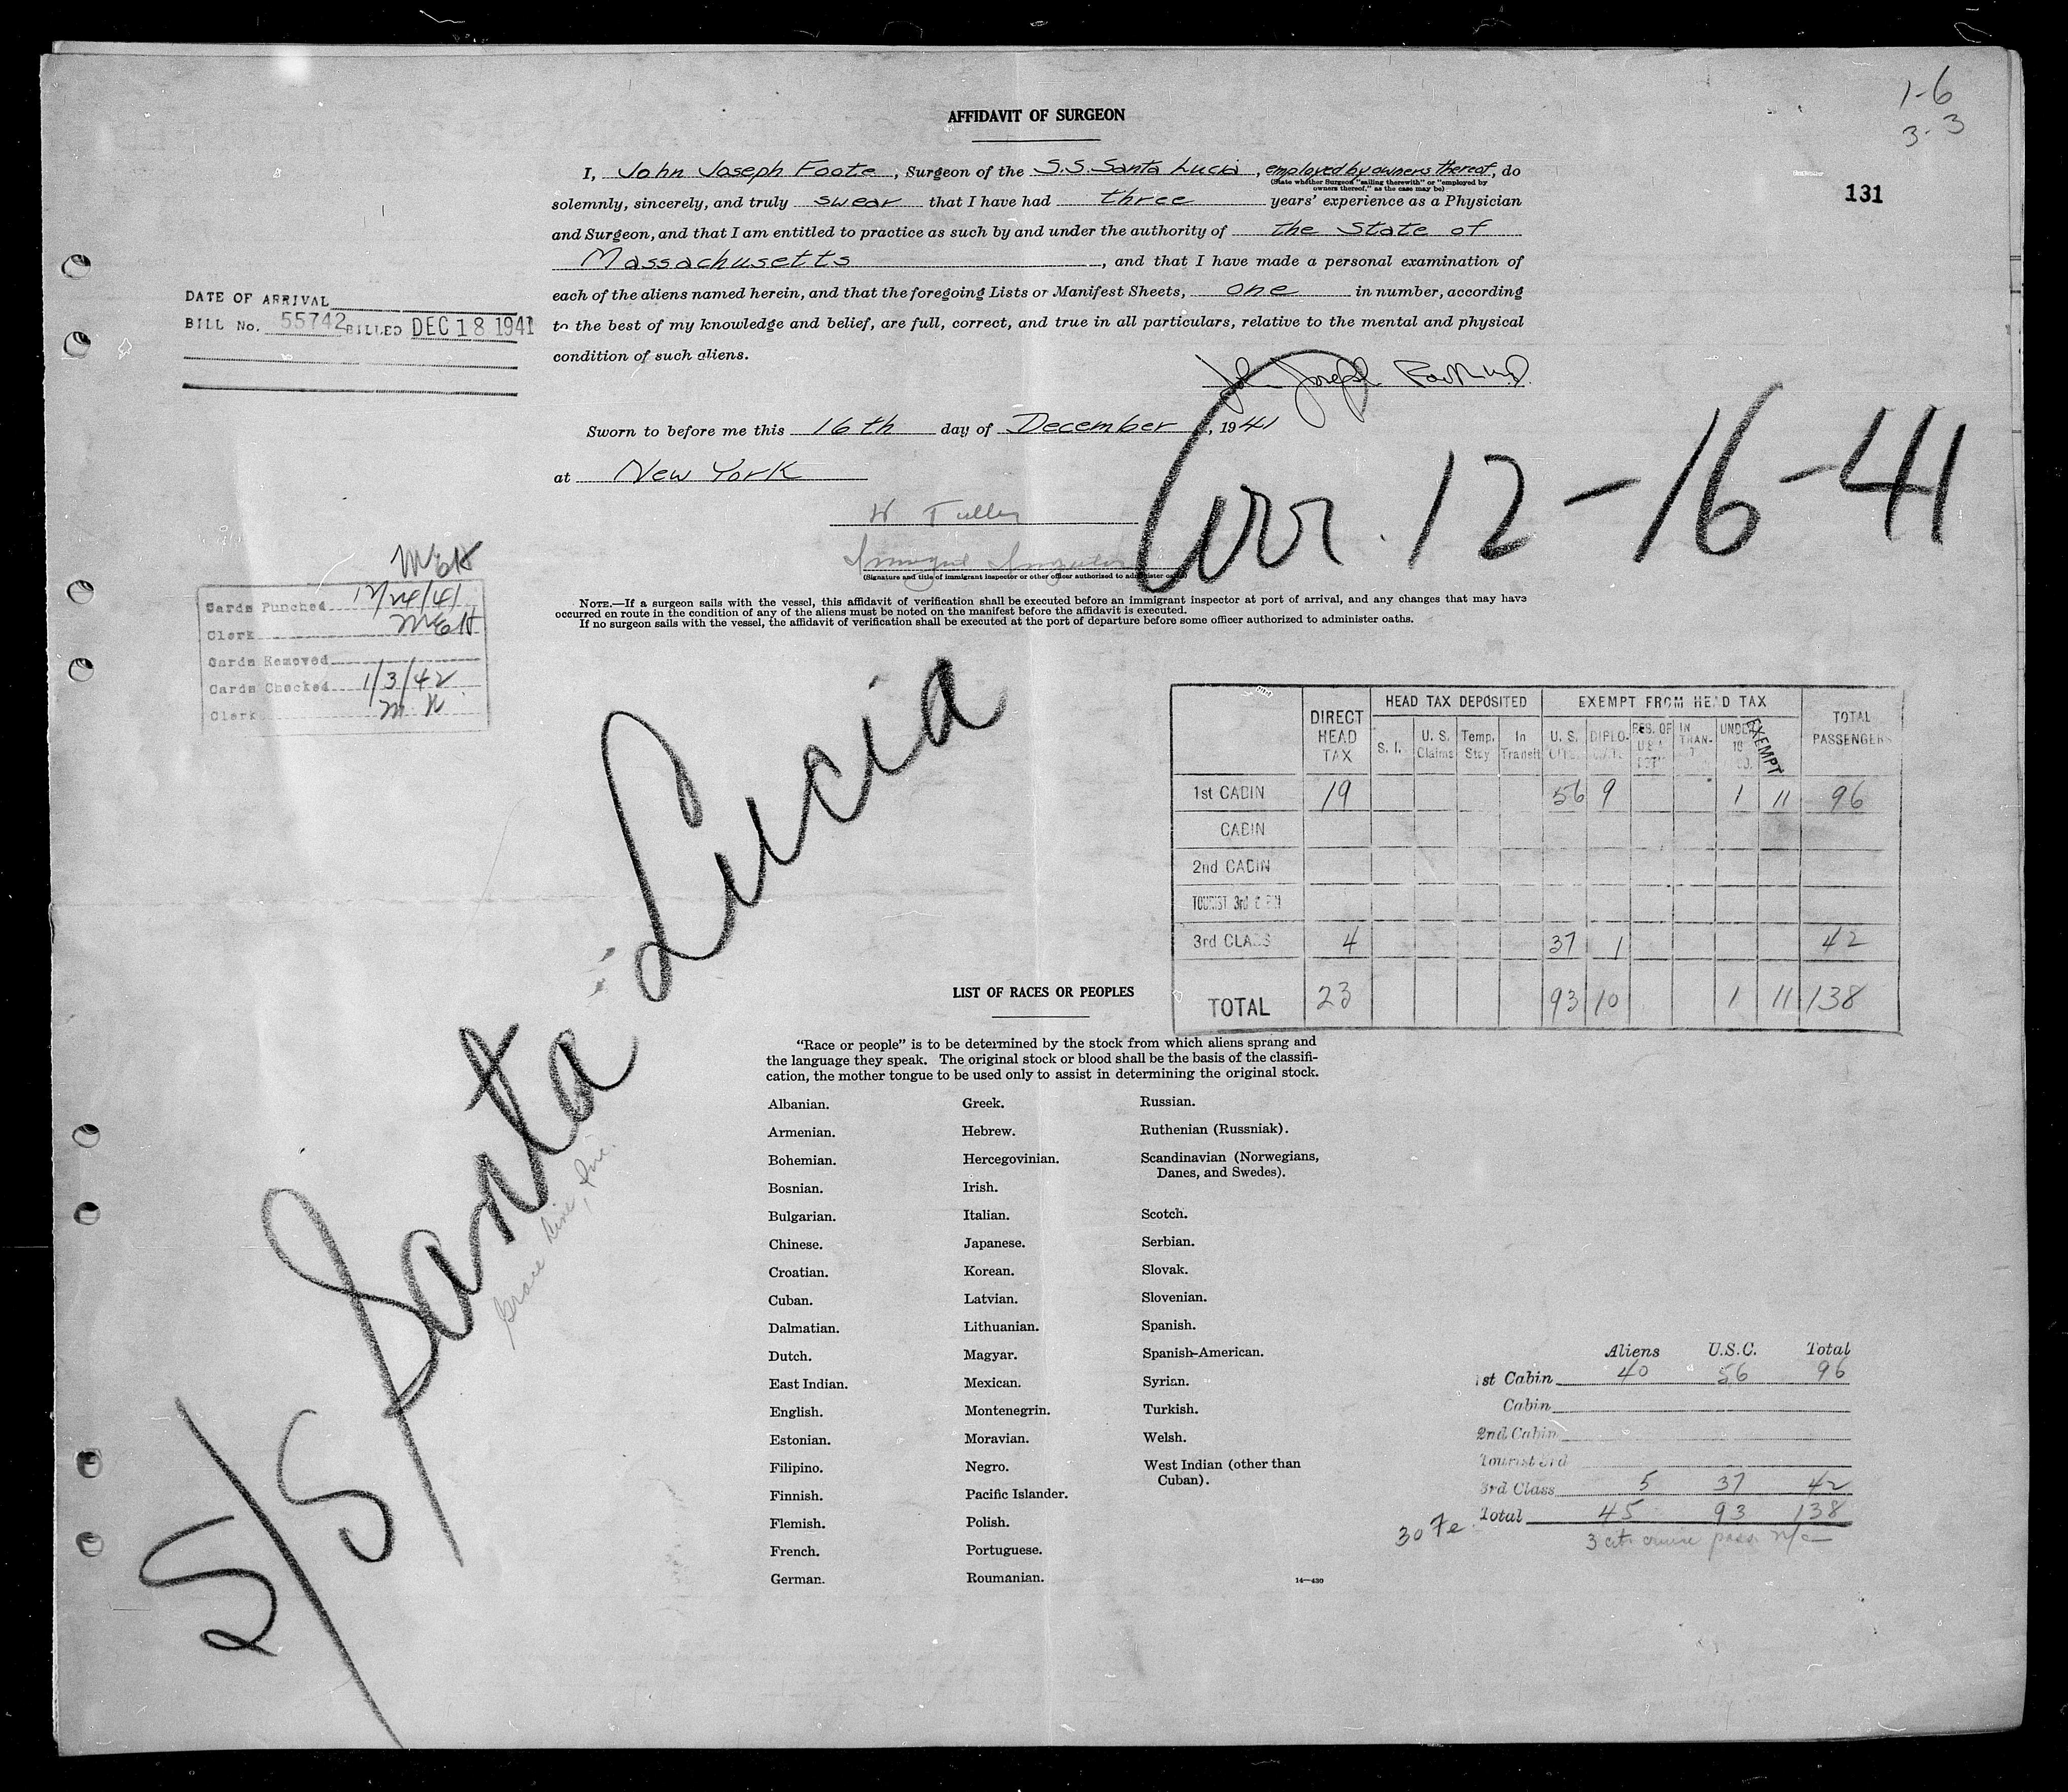 1-6
3-3
131
AFFIDAVIT OF SURGEON
I, John Joseph Foote, Surgeon of the S.S. Santa Lucia, employed by owners thereof, do
(State whether Surgeon "sailing therewith" or "employed by
owners thereof," as the case may be)
solemnly, sincerely, and truly swear that I have had three years' experience as a Physician
and Surgeon, and that I am entitled to practice as such by and under the authority of the State of
Massachusetts, and that I have made a personal examination of
each of the aliens named herein, and that the foregoing Lists or Manifest Sheets, one in number, according
to the best of my knowledge and belief, are full, correct, and true in all particulars, relative to the mental and physical
condition of such aliens.
John Joseph Foote M.D.
Sworn to before me this 16th day of December, 1941
at New York
(Signature and title of immigrant inspector or other officer authorized to administer oaths)
NOTE.—If a surgeon sails with the vessel, this affidavit of verification shall be executed before an immigrant inspector at port of arrival, and any changes that may have
occurred en route in the condition of any of the aliens must be noted on the manifest before the affidavit is executed.
If no surgeon sails with the vessel, the affidavit of verification shall be executed at the port of departure before some officer authorized to administer oaths.
DATE OF ARRIVAL
BILL No. 55742 BILLED DEC 18 1941
Arr. 12-16-41
MEH
Cards Punched 12/24/41
Clerk MEH
Cards Removed
Cards Checked 1/3/42
Clerk M K
S/S Santa Lucia
Grace Line, Inc.
DIRECT HEAD TAX HEAD TAX DEPOSITED EXEMPT FROM HEAD TAX TOTAL PASSENGERS
S. I. U. S. Claims Temp. Stay In Transit U. S. DIPLO- RES. OF U S A IN TRAN- UNDER 16 EXEMPT
1st CABIN 19 56 9 1 11 96
CABIN
2nd CABIN
TOURIST 3rd CABIN
3rd CLASS 4 37 1 42
TOTAL 23 93 10 1 11 138
LIST OF RACES OR PEOPLES
"Race or people" is to be determined by the stock from which aliens sprang and
the language they speak. The original stock or blood shall be the basis of the classifi-
cation, the mother tongue to be used only to assist in determining the original stock.
Albanian.
Armenian.
Bohemian.
Bosnian.
Bulgarian.
Chinese.
Croatian.
Cuban.
Dalmatian.
Dutch.
East Indian.
English.
Estonian.
Filipino.
Finnish.
Flemish.
French.
German.
Greek.
Hebrew.
Hercegovinian.
Irish.
Italian.
Japanese.
Korean.
Latvian.
Lithuanian.
Magyar.
Mexican.
Montenegrin.
Moravian.
Negro.
Pacific Islander.
Polish.
Portuguese.
Roumanian.
Russian.
Ruthenian (Russniak).
Scandinavian (Norwegians,
Danes, and Swedes).
Scotch.
Serbian.
Slovak.
Slovenian.
Spanish.
Spanish-American.
Syrian.
Turkish.
Welsh.
West Indian (other than
Cuban).
14—430
Aliens U.S.C. Total
1st Cabin 40 56 96
Cabin
2nd Cabin
Tourist 3rd
3rd Class 5 37 42
Total 45 93 138